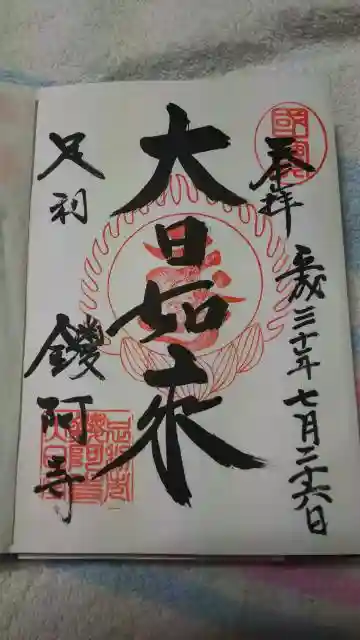 奉拝
平成三十年七月二十六日
大日如来
足利
鑁阿寺